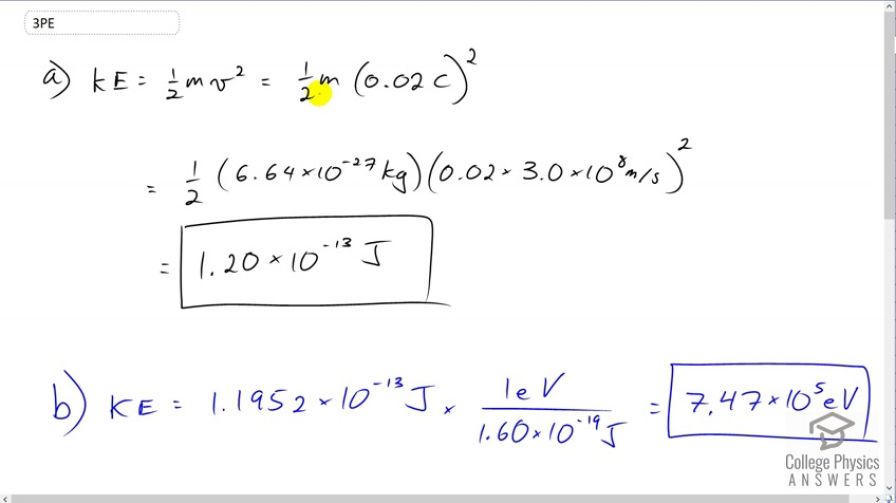 3PE
a) KE = 1/2 m v² = 1/2 m (0.02 c)²
= 1/2 (6.64 × 10⁻²⁷ kg)(0.02 × 3.0 × 10⁸ m/s)²
= 1.20 × 10⁻¹³ J
b) KE = 1.1952 × 10⁻¹³ J × 1eV / 1.60 × 10⁻¹⁹ J = 7.47 × 10⁵ eV
College Physics
ANSWERS